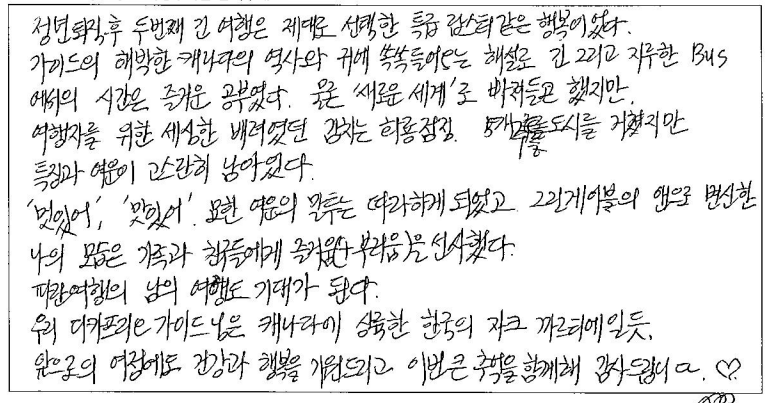 정년퇴직후 두번째 긴 여행은 제대로 선택한 특급 랍스타 같은 행복이었다.
가이드의 해박한 캐나다의 역사와 귀에 쏙쏙들어오는 해설로 긴 그리고 지루한 Bus
에서의 시간은 즐거운 공부였다. '새로운 세계'로 빠져들곤 했지만,
여행자를 위한 세심한 배려였던 감차는 화룡점정. 5개 도시를 거쳤지만
특징과 여운이 고스란히 남아있다.
'멋있어', '맛있어'. 묘한 여운의 말투는 따라하게 되었고 그린게이블의 앤으로 변신한
나의 모습은 가족과 친구들에게 즐거움(+부러움)을 선사했다.
파란여행의 남의 여행도 기대가 된다.
우리 디카프리오 가이드님은 캐나다에 상륙한 한국의 자크 까르띠에일듯,
앞으로의 여정에도 건강과 행복을 기원드리고 이번 큰 추억을 함께해 감사드립니다. ♡